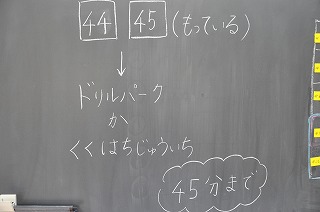 44 45 (もっている)
↓
ドリルパーク
か
くくはちじゅういち
45分まで